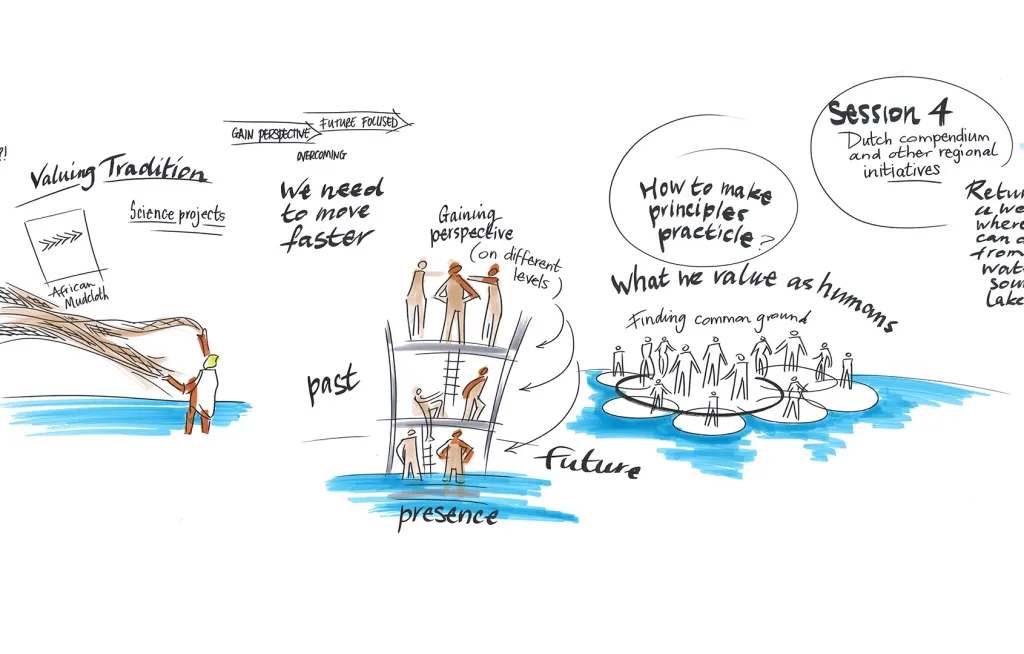 ?!
Valuing Tradition
Science projects
African
Mudcloth
GAIN PERSPECTIVE
FUTURE FOCUSED
OVERCOMING
We need
to move
faster
Gaining
perspective
(on different
levels)
past
presence
Future
How to make
principles
practicle?
What we value as humans
Finding common ground
Session 4
Dutch compendium
and other regional
initiatives
Retur
a we
where
can d
from
wat
sou
Lake